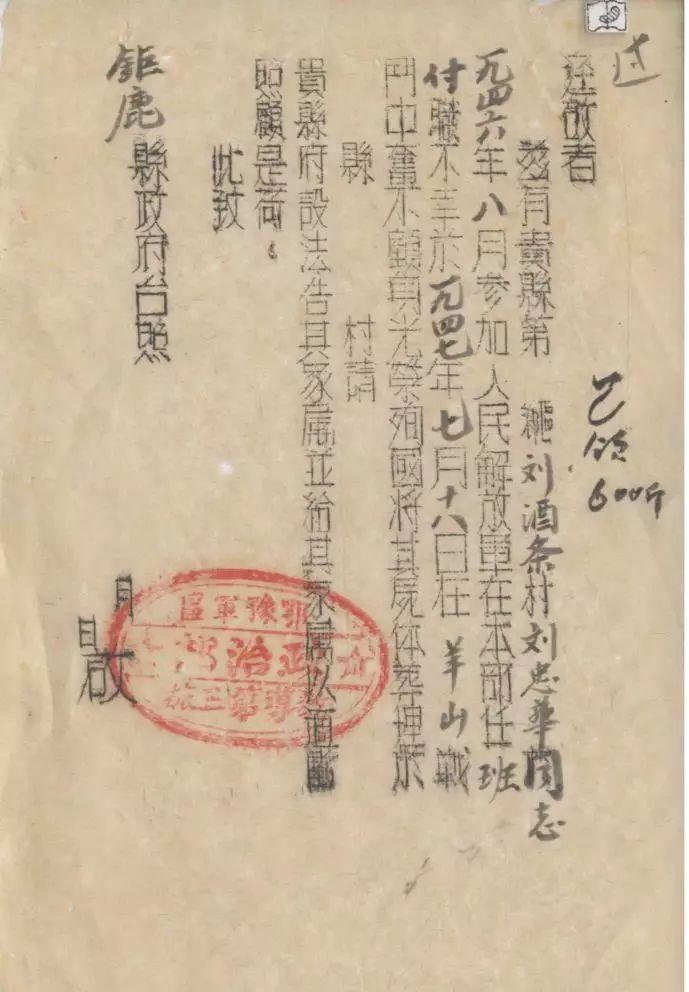 过
逕啟者
茲有貴縣第 區刘酒条村刘忠華同志
一九四六年八月参加人民解放軍在本部任班
付職不幸於一九四七年七月十八日在羊山戰
鬥中奮不顧身光榮殉國將其屍体葬埋於
縣 村請
貴縣府設法告其家屬並給其家屬以適當
照顧是荷
此致
鉅鹿縣政府台照
月
日啟
已領
600斤
鄂豫軍區
政治部
第三旅